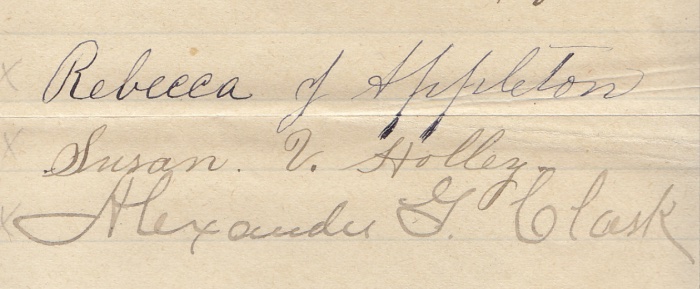 Rebecca J Appleton
Susan. V. Holley.
Alexander G. Clark